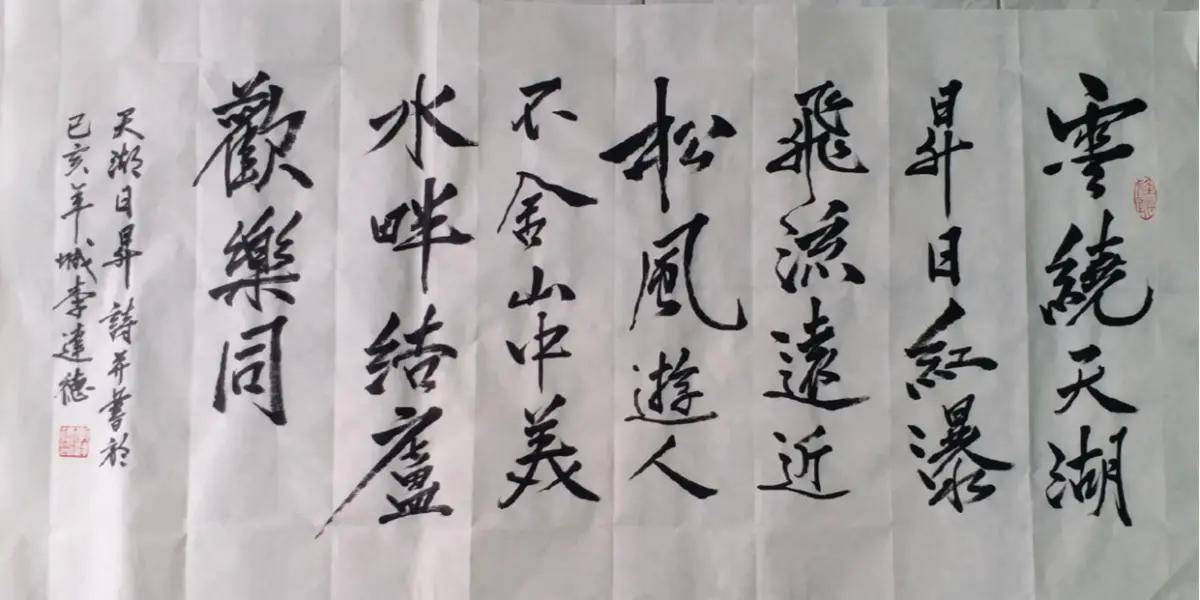 雲繞天湖
昇日紅瀑
飛流遠近
松風遊人
不舍山中美
水畔结廬
歡樂同
天湖日昇 詩并書於
己亥年城李達德